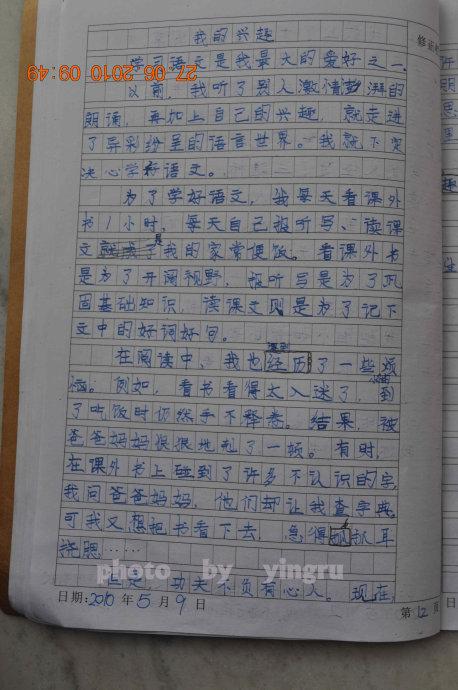 我的兴趣
学习语文是我最大的爱好之一。
以前,我听了别人激情澎湃的
朗诵,再加上自己的兴趣,就走进
了异彩纷呈的语言世界。我就下定
决心学好语文。
为了学好语文,我每天看课外
书1小时,每天自己报听写、读课
文是我的家常便饭。看课外书
是为了开阔视野,报听写是为了巩
固基础知识,读课文则是为了记下
文中的好词好句。
遇到
在阅读中,我也经历了一些烦
恼。例如,看书看得太入迷了,到
了吃饭时仍然手不释卷。结果,被
爸爸妈妈狠狠地剋了一顿。有时,
在课外书上碰到了许多不认识的字,
我问爸爸妈妈,他们却让我查字典,
可我又想把书看下去,急得抓耳
挠腮……
功夫不负有心人。现在,
日期:2010年5月9日
第12页
27 06 2010 09:49
photo by yingru